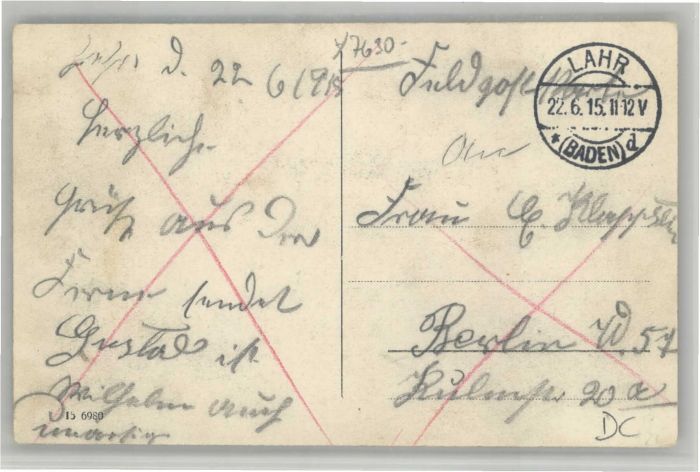 Lahr d. 22 6 1915
Herzliche
Grüße aus der
Ferne sendet
Gustav ist
Wilhelm auch
15 6980
7630-
Feldpost Karte
LAHR
22.6.15.11-12V
* (BADEN) d
An
Frau E.
Berlin W. 57
Kulmstr. 20 a
DC